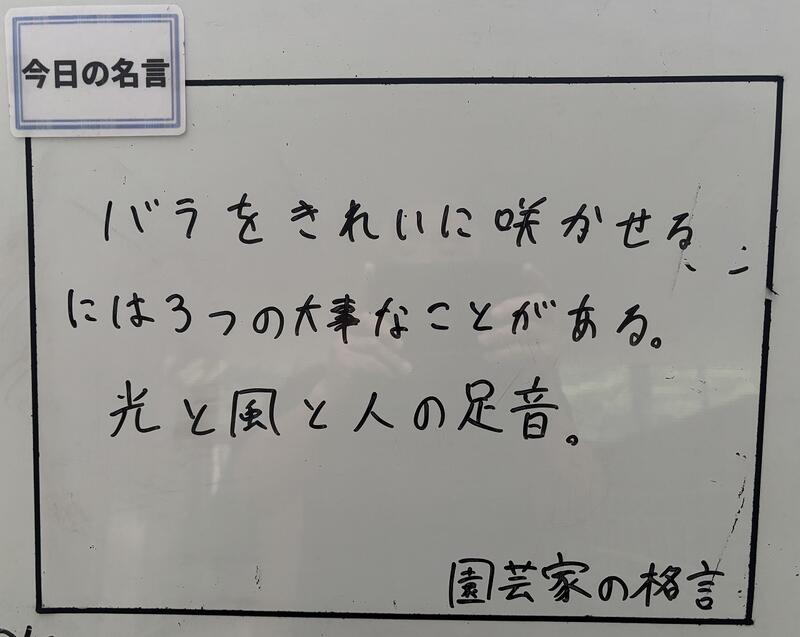 今日の名言
バラをきれいに咲かせる
には3つの大事なことがある。
光と風と人の足音。
園芸家の格言